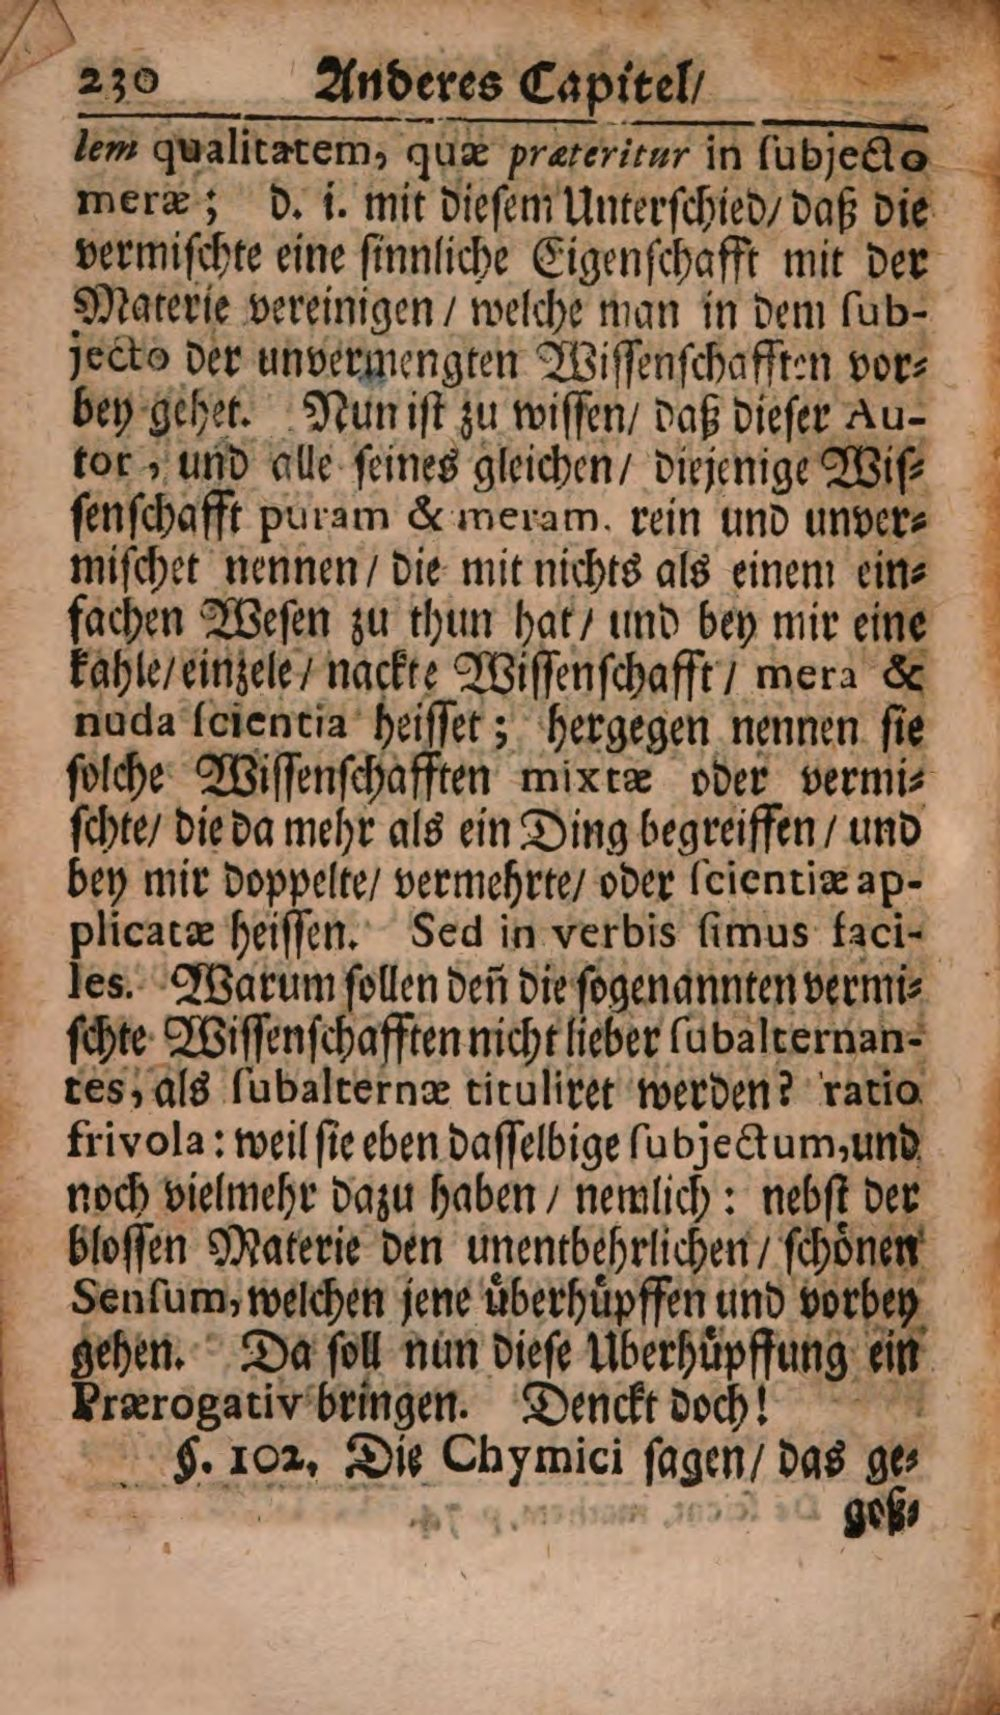 230 Anderes Capitel/
lem qualitatem, quæ præteritur in ſubjecto
meræ; d. i. mit dieſem Unterſchied/ daß die
vermiſchte eine ſinnliche Eigenſchafft mit der
Materie vereinigen/ welche man in dem ſub-
jecto der unvermengten Wiſſenſchafften vor-
bey gehet. Nun iſt zu wiſſen/ daß dieſer Au-
tor, und alle ſeines gleichen/ diejenige Wiſ-
ſenſchafft puram & meram. rein und unver-
miſchet nennen/ die mit nichts als einem ein-
fachen Weſen zu thun hat/ und bey mir eine
kahle/ einzele/ nackte Wiſſenſchafft/ mera &
nuda ſcientia heiſſet; hergegen nennen ſie
ſolche Wiſſenſchafften mixtæ oder vermi-
ſchte/ die da mehr als ein Ding begreiffen/ und
bey mir doppelte/ vermehrte/ oder ſcientiæ ap-
plicatæ heiſſen. Sed in verbis ſimus faci-
les. Warum ſollen deñ die ſogenannten vermi-
ſchte Wiſſenſchafften nicht lieber ſubalternan-
tes, als ſubalternæ tituliret werden? ratio
frivola: weil ſie eben daſſelbige ſubjectum, und
noch vielmehr dazu haben/ nemlich: nebſt der
bloſſen Materie den unentbehrlichen/ ſchönen
Senſum, welchen jene überhüpffen und vorbey
gehen. Da ſoll nun dieſe Uberhüpffung ein
Prærogativ bringen. Denckt doch!
§. 102. Die Chymici ſagen/ das ge-
goß-